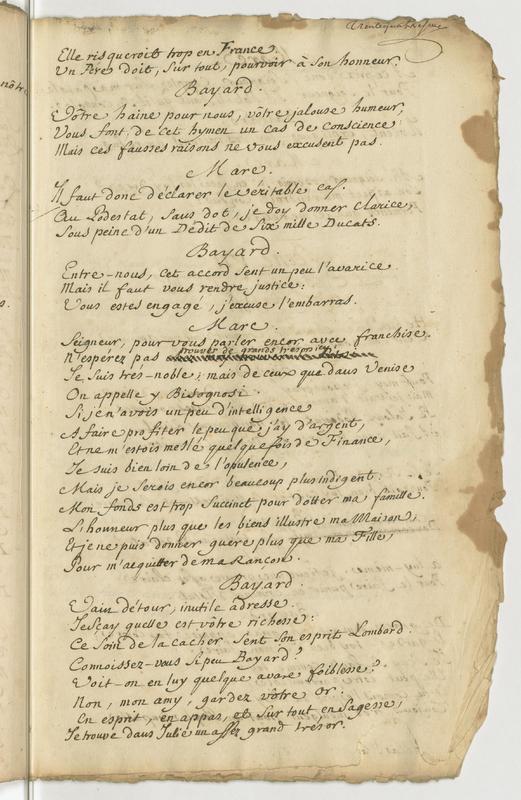 Trentequatriesme
Elle risqueroit trop en France.
Un Pere doit, sur tout, pourvoir à son honneur.
Bayard.
Vôtre haine pour nous, vôtre jalouse humeur,
Vous font, de cet hymen un cas de conscience
Mais ces fausses raisons ne vous excusent pas.
Marc.
Il faut donc déclarer le véritable cas.
Au Podestat, sans dot, je doy donner Clarice,
Sous peine d'un Dédit de six mille Ducats.
Bayard.
Entre-nous, cet accord sent un peu l'avarice
Mais il faut vous rendre justice:
Vous estes engagé, j'excuse l'embarras.
Marc.
Seigneur, pour vous parler encor avec franchise.
N'espérez pas trouver de grands tresors icy
Je suis trés-noble; mais de ceux que dans Venise
On appelle y Bisognosi.
Si je n'avois un peu d'intelligence
A faire profiter le peu que j'ay d'argent,
Et ne m'estois meslé quelque fois de Finance,
Je suis bien loin de l'opulence,
Mais je serois encor beaucoup plus indigent.
Mon fonds est trop succinct pour dotter ma famille.
L'honneur plus que les biens illustre ma Maison,
Et je ne puis donner guere plus que ma Fille,
Pour m'aquitter de ma Rançon.
Bayard.
Vain détour, inutile adresse.
Je sçay quelle est vôtre richesse:
Ce soin de la cacher sent son esprit Lombard.
Connoissez-vous si peu Bayard?
Voit-on en luy quelque avare foiblesse?
Non, mon amy, gardez vôtre or:
En esprit, en appas, et sur tout en Sagesse,
Je trouve dans Julie un assez grand tresor.